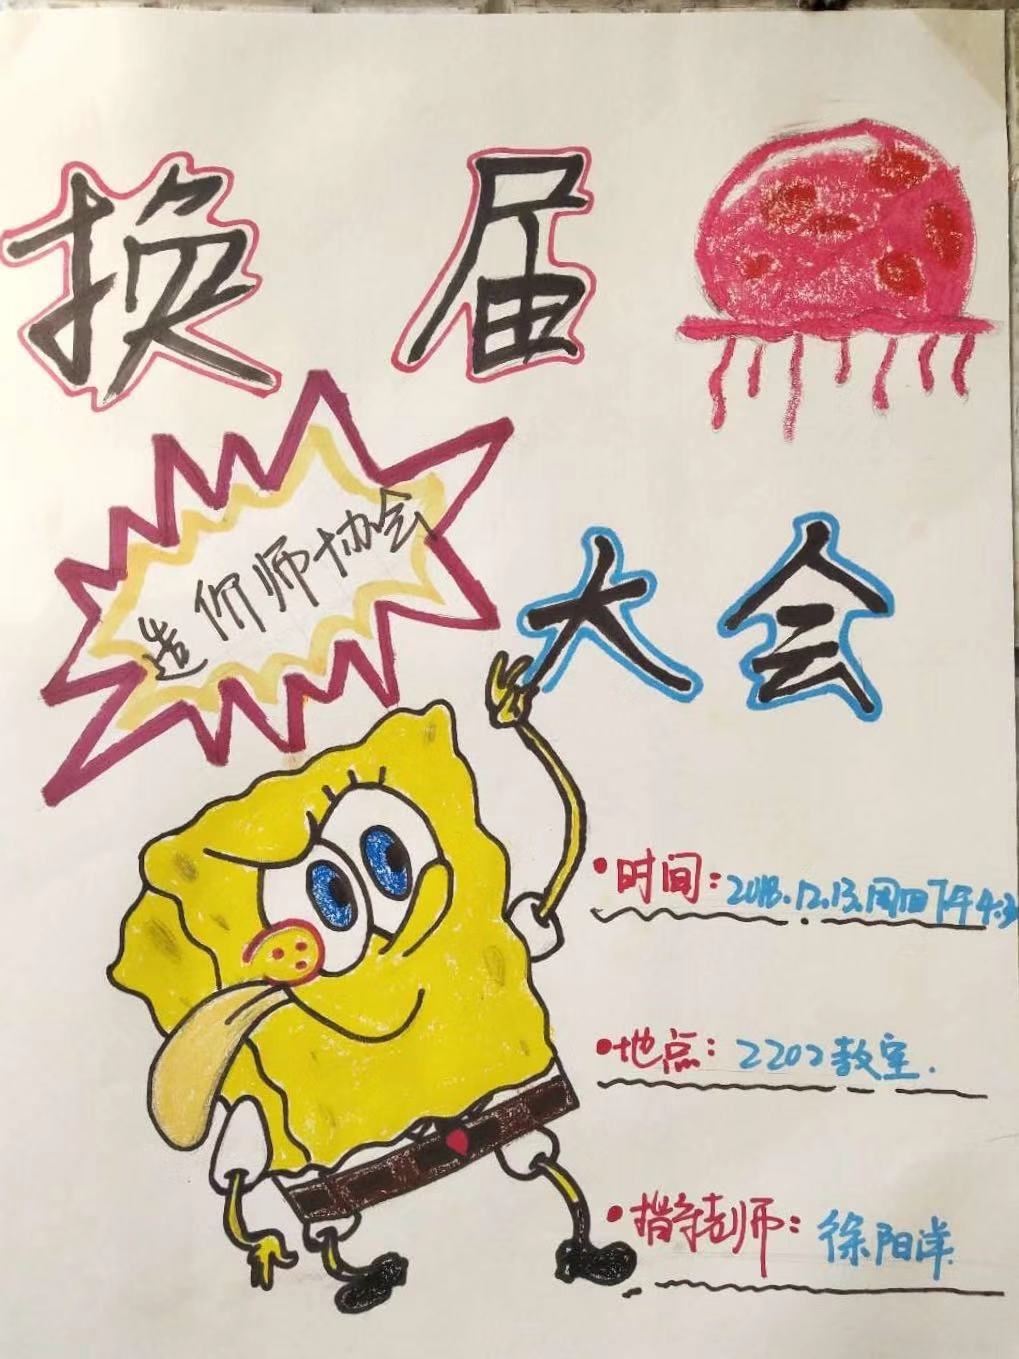 换届
造价师协会
大会
•时间：2018.12.13.周四下午4:3
•地点：2202教室.
•指导老师：徐阳洋